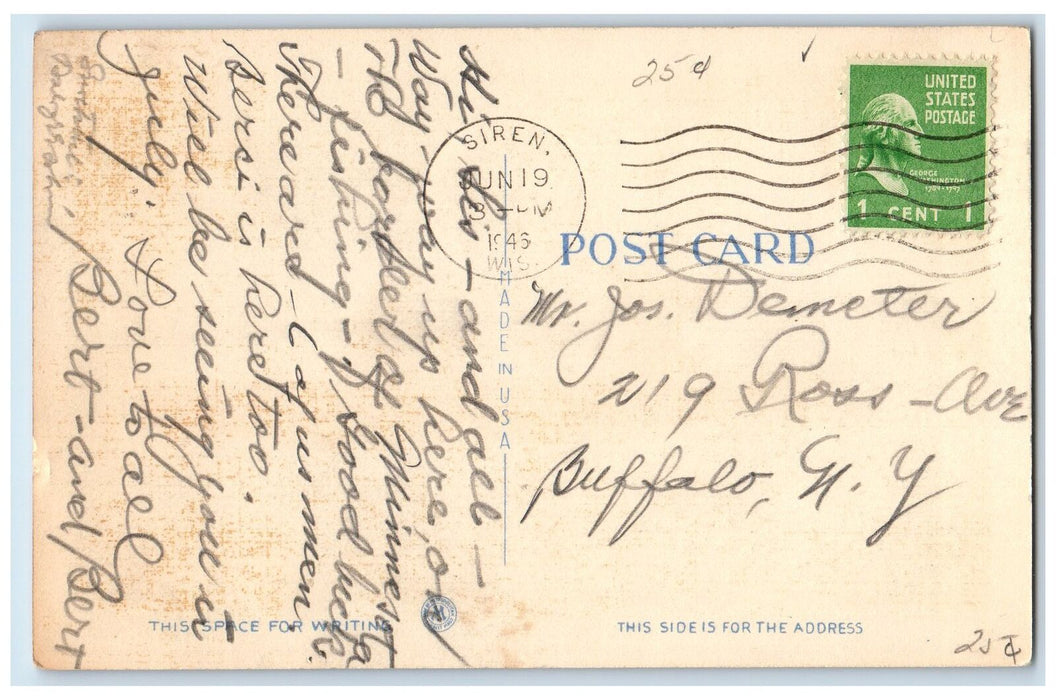 Hi and all –
Way, way up here, on
the border of Minnesota
– fishing – good luck.
There are – 6 of us men.
is here too.
Will be seeing you in
July. Love to all
Bert – and Bert
25¢
SIREN,
JUN 19
3 – PM
1946
WIS.
UNITED
STATES
POSTAGE
GEORGE
WASHINGTON
1789-1797
1 CENT 1
POST CARD
MADE IN USA
Mr. Jos. Demeter
219 Ross – Ave
Buffalo, N. Y
THIS SPACE FOR WRITING
THIS SIDE IS FOR THE ADDRESS
25¢